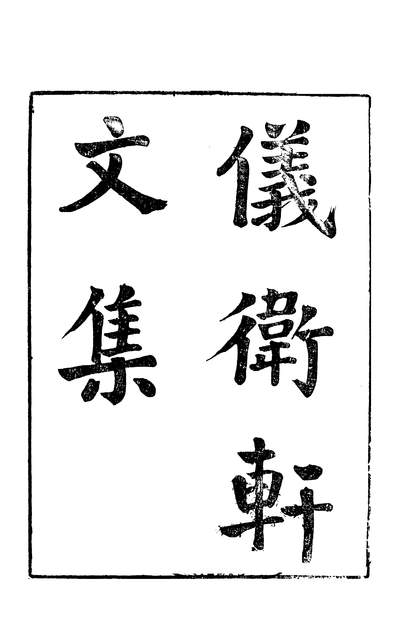 儀衛軒
文集